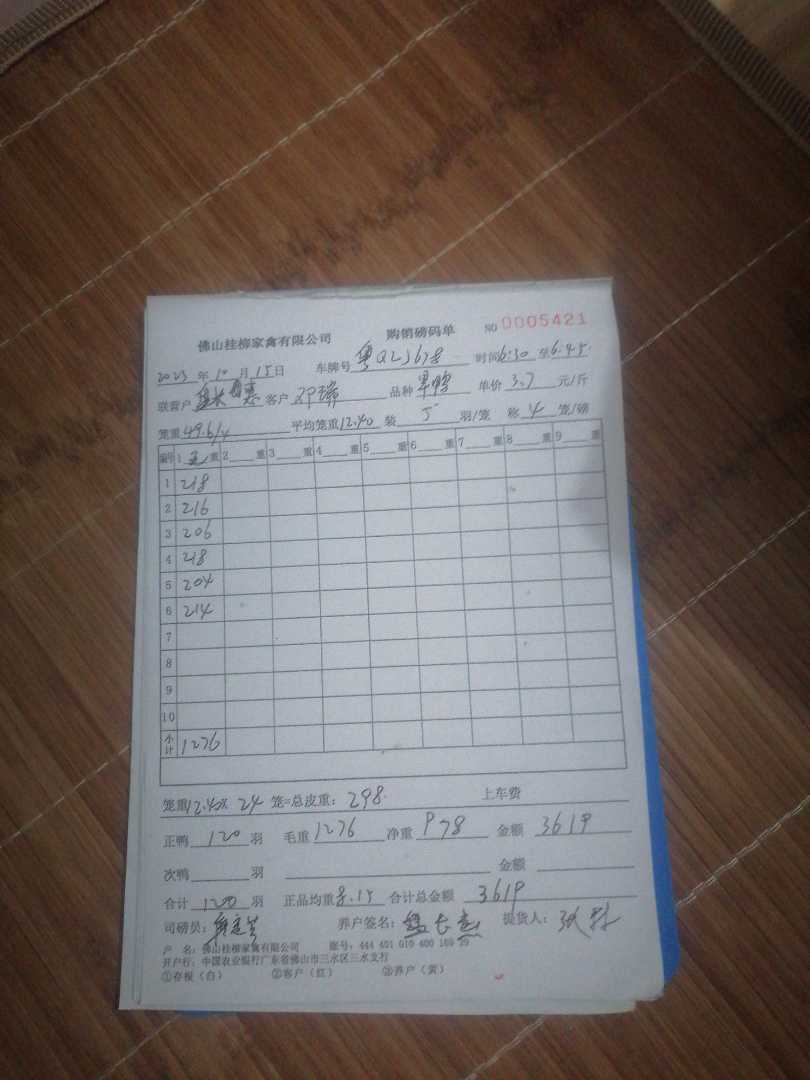 佛山桂柳家禽有限公司 购销磅码单 NO 0005421
2023年10月15日 车牌号 粤QLJ678 时间6:30至6:45
联营户 客户 邓瑞 品种 单价 3.7 元/斤
笼重49.6/4 平均笼重12.40 装 5 羽/笼 称 4 笼/磅
编号 1 重 2 重 3 重 4 重 5 重 6 重 7 重 8 重 9 重
1 218
2 216
3 206
4 218
5 204
6 214
7
8
9
10
小计 1276
笼重12.40X 24 笼=总皮重: 298. 上车费
正鸭 120 羽 毛重1276 净重 978 金额 3619
次鸭 羽 金额
合计 120 羽 正品均重8.15 合计总金额 3619
司磅员: 养户签名: 提货人:
户 名: 佛山桂柳家禽有限公司 账号: 444 401 010 400 169 39
开户行: 中国农业银行广东省佛山市三水区三水支行
①存根(白) ②客户(红) ③养户(黄)